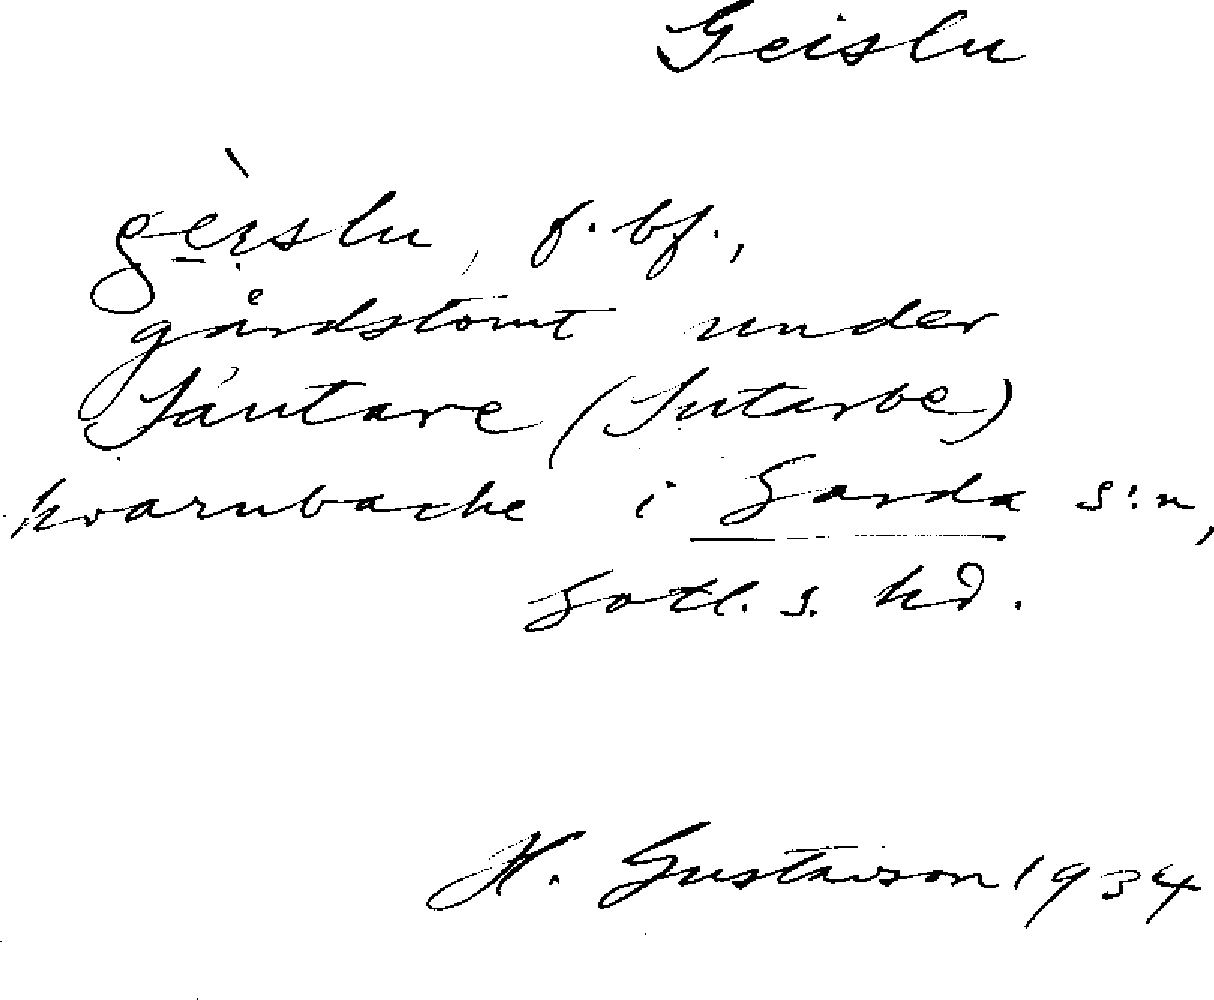 Geislu
gèi̯slu, f. bf.,
gårdstomt under
Sáutare (Sutarve)
kvarnbacke i Garda s:n,
Gotl. s. hd.
H. Gustavson 1934